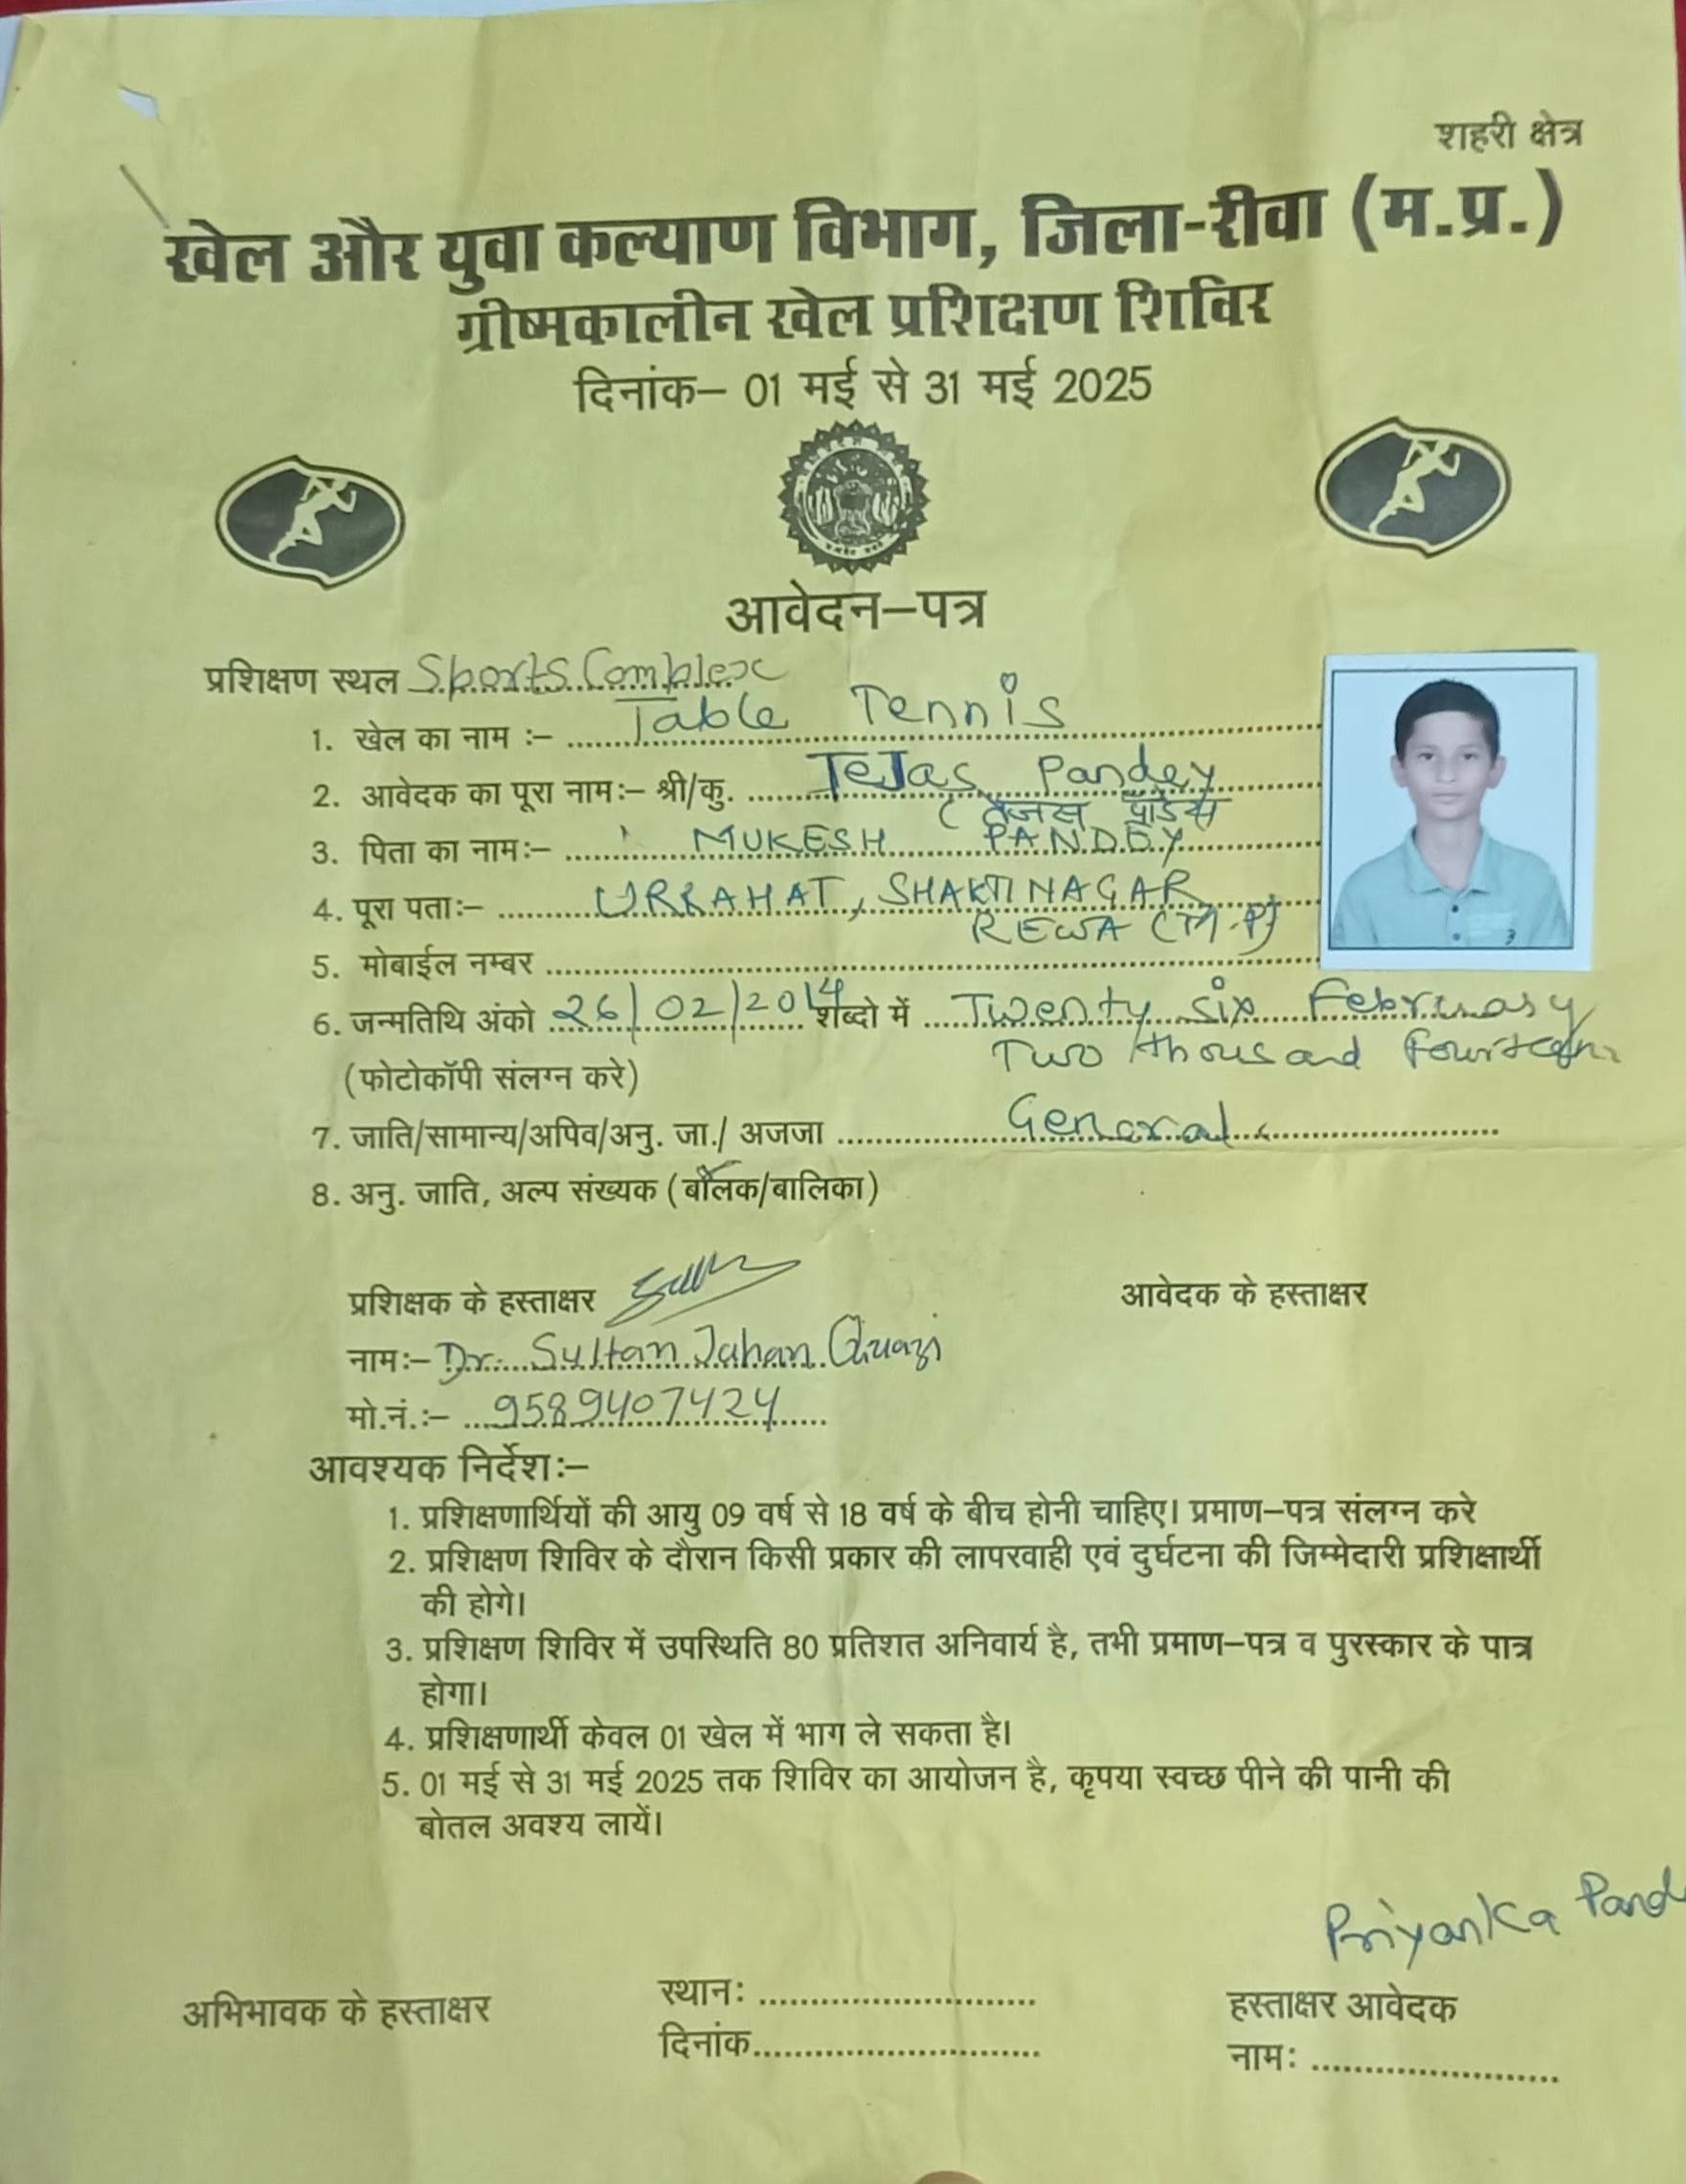 शहरी क्षेत्र
खेल और युवा कल्याण विभाग, जिला-रीवा (म.प्र.)
ग्रीष्मकालीन खेल प्रशिक्षण शिविर
दिनांक– 01 मई से 31 मई 2025
आवेदन–पत्र
प्रशिक्षण स्थल Sports Complex
1. खेल का नाम :– Table Tennis
2. आवेदक का पूरा नाम:– श्री/कु. TeJas Pandey
( तेजस पांडेय
3. पिता का नाम:– MUKESH PANDEY
4. पूरा पता:– URRAHAT, SHAKTI NAGAR
REWA (M.P)
5. मोबाईल नम्बर
6. जन्मतिथि अंको 26/02/2014 शब्दो में Twenty six February
Two thousand fourteen
(फोटोकॉपी संलग्न करे)
7. जाति/सामान्य/अपिव/अनु. जा./ अजजा General
8. अनु. जाति, अल्प संख्यक (बालक/बालिका)
प्रशिक्षक के हस्ताक्षर
आवेदक के हस्ताक्षर
नाम:– Dr. Sultan Jahan Quazi
मो.नं.:– 9589407424
आवश्यक निर्देश:–
1. प्रशिक्षणार्थियों की आयु 09 वर्ष से 18 वर्ष के बीच होनी चाहिए। प्रमाण–पत्र संलग्न करे
2. प्रशिक्षण शिविर के दौरान किसी प्रकार की लापरवाही एवं दुर्घटना की जिम्मेदारी प्रशिक्षार्थी
की होगे।
3. प्रशिक्षण शिविर में उपस्थिति 80 प्रतिशत अनिवार्य है, तभी प्रमाण–पत्र व पुरस्कार के पात्र
होगा।
4. प्रशिक्षणार्थी केवल 01 खेल में भाग ले सकता है।
5. 01 मई से 31 मई 2025 तक शिविर का आयोजन है, कृपया स्वच्छ पीने की पानी की
बोतल अवश्य लायें।
Priyanka Pand
अभिभावक के हस्ताक्षर
स्थान:
दिनांक
हस्ताक्षर आवेदक
नाम: